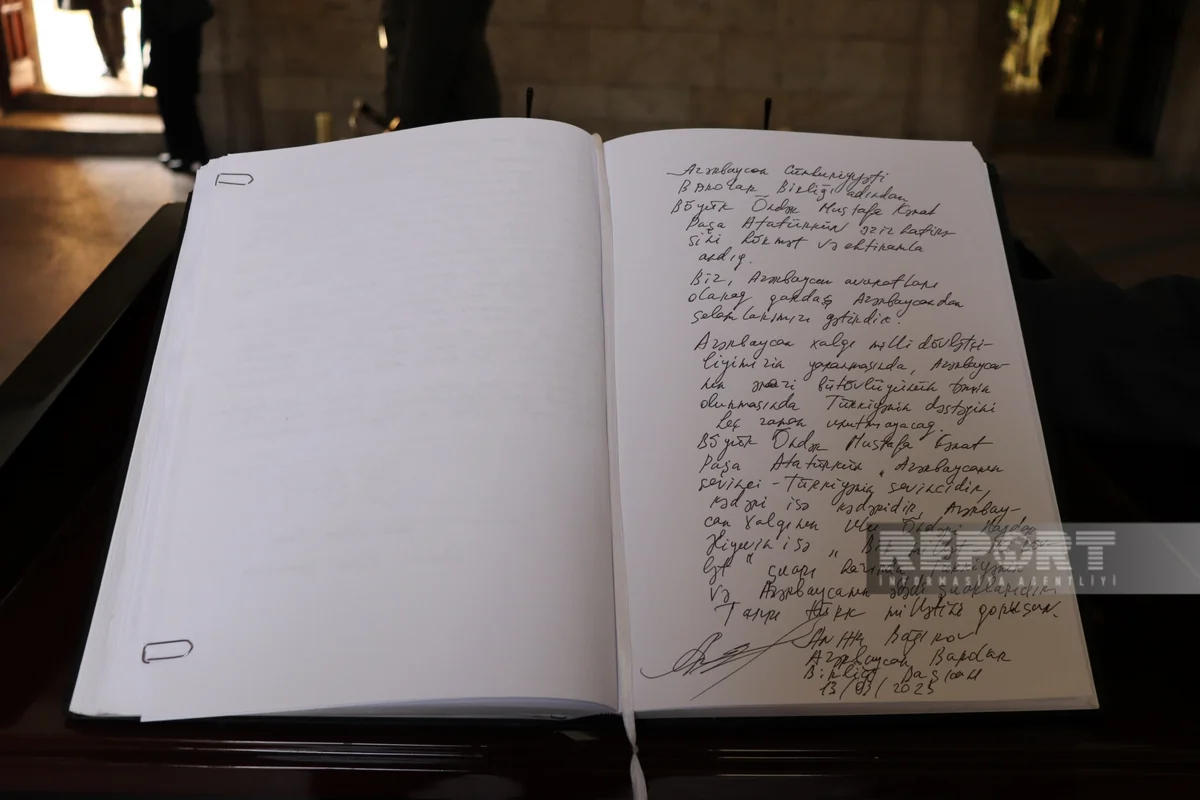 Azərbaycan Cümhuriyyəti
Barolar Birliği adından
Böyük Öndər Mustafa Kəmal
Paşa Atatürkün əziz hatirə
sini hörmət və ehtiramla
andıq.
Biz, Azərbaycan avukatları
olaraq qardaş Azərbaycandan
salamlarımızı gətirdik.
Azərbaycan xalqı milli dövlətçi-
liyimizin yaranmasında, Azərbayca-
nın ərazi bütövlüyünün təmin
olunmasında Türkiyənin dəstəyini
heç zaman unutmayacaq.
Böyük Öndər Mustafa Kəmal
Paşa Atatürkün "Azərbaycanın
sevinci - Türkiyənin sevincidir,
kədəri isə kədəridir, Azərbay-
can xalqının Ulu Öndəri Heydər
Əliyevin isə "Bir
lət" şüarı Türkiyənin
və Azərbaycanın əbədi şüarlarıdır.
Tanrı türk millətini qorusun.
Anar Bağırov
Azərbaycan Barolar
Birliği Başkanı
13/03/2025
REPORT
İNFORMASİYA AGENTLİYİ